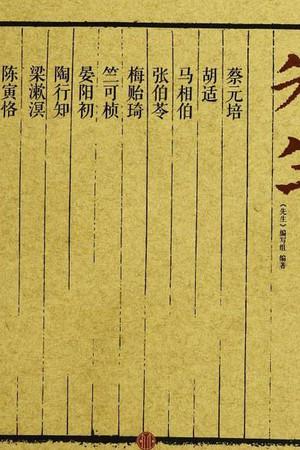 先生
《先生》编写组 编著
蔡元培
胡适
马相伯
张伯苓
梅贻琦
竺可桢
晏阳初
陶行知
梁漱溟
陈寅恪